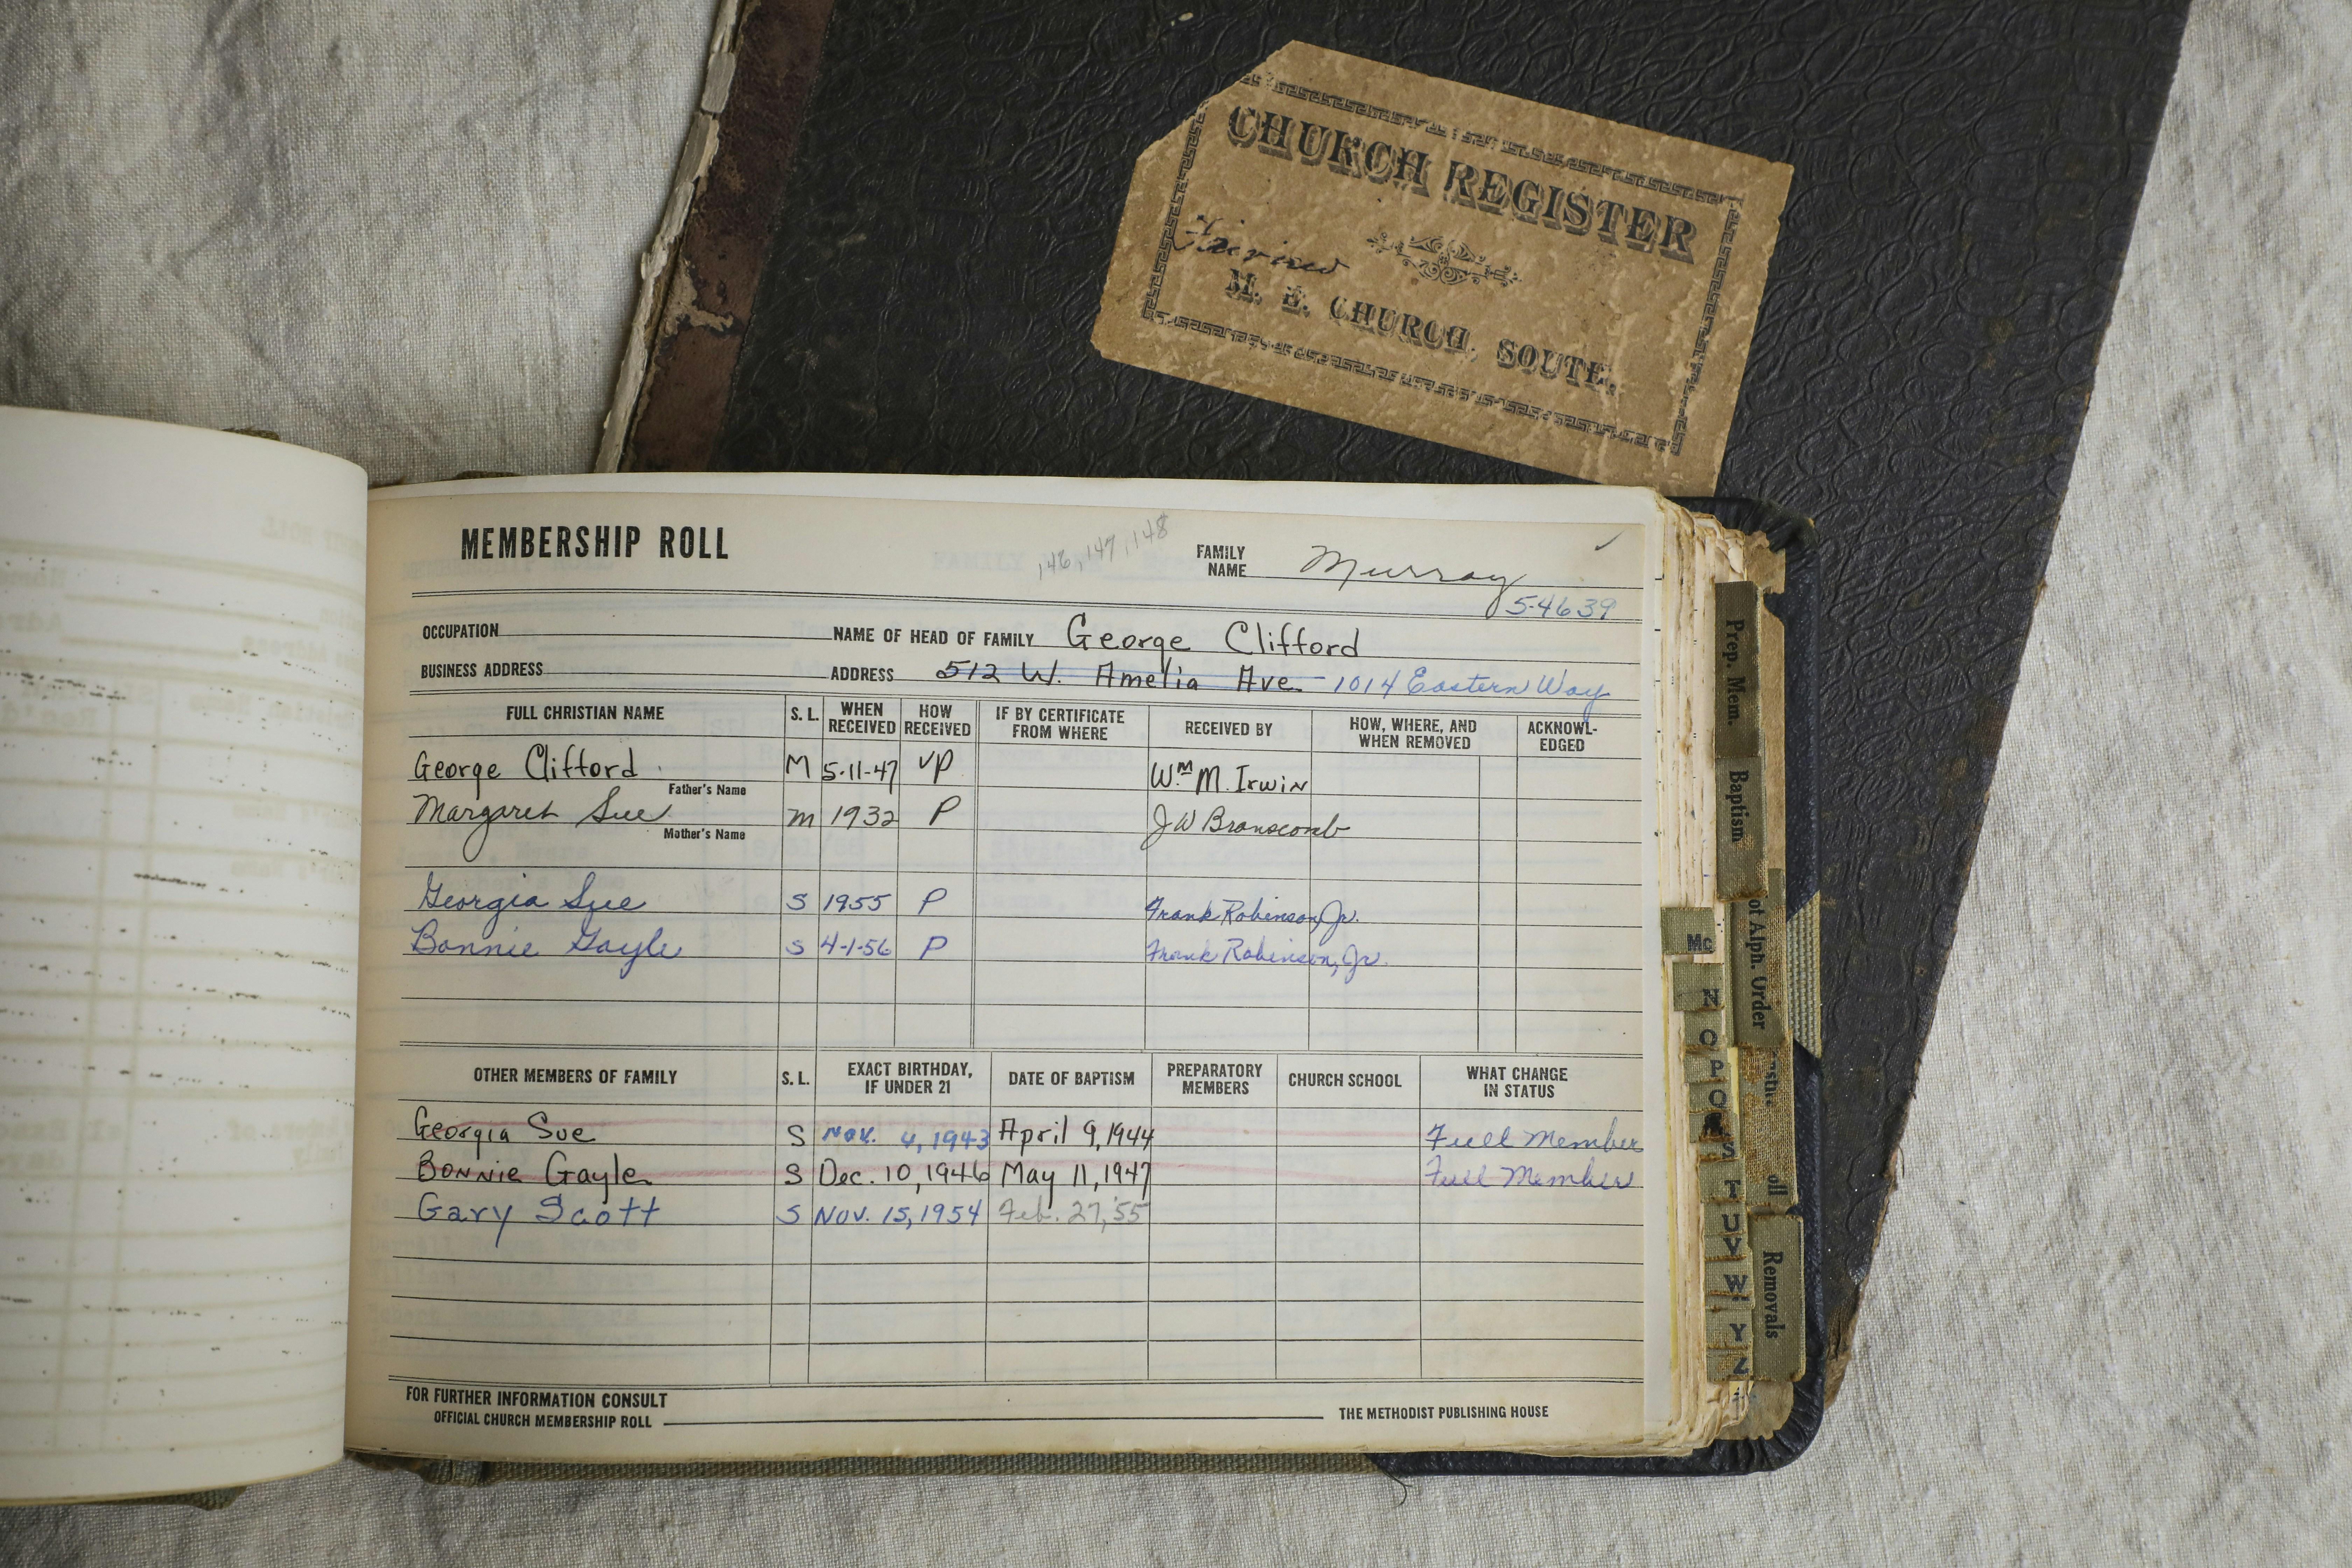 CHURCH REGISTER
M. E. CHURCH, SOUTH.
MEMBERSHIP ROLL
146, 147, 148
FAMILY NAME Murray
5-4639
OCCUPATION NAME OF HEAD OF FAMILY George Clifford
BUSINESS ADDRESS ADDRESS 512 W. Amelia Ave. 1014 Eastern Way
FULL CHRISTIAN NAME S. L. WHEN RECEIVED HOW RECEIVED IF BY CERTIFICATE FROM WHERE RECEIVED BY HOW, WHERE, AND WHEN REMOVED ACKNOWL-EDGED
George Clifford M 5-11-47 VP Wm M. Irwin
Father's Name
Margaret Sue M 1932 P J W Branscomb
Mother's Name
Georgia Sue S 1955 P Frank Robinson, Jr.
Bonnie Gayle S 4-1-56 P Frank Robinson, Jr.
OTHER MEMBERS OF FAMILY S. L. EXACT BIRTHDAY, IF UNDER 21 DATE OF BAPTISM PREPARATORY MEMBERS CHURCH SCHOOL WHAT CHANGE IN STATUS
Georgia Sue S Nov. 4, 1943 April 9, 1944 Full Member
Bonnie Gayle S Dec. 10, 1946 May 11, 1947 Full Member
Gary Scott S Nov. 15, 1954 Feb. 27, '55
FOR FURTHER INFORMATION CONSULT
OFFICIAL CHURCH MEMBERSHIP ROLL THE METHODIST PUBLISHING HOUSE
Prep. Mem.
Baptism
Alph. Order
Removals
Mc
N
O
P
Q
S
T
U
V
W
Y
Z